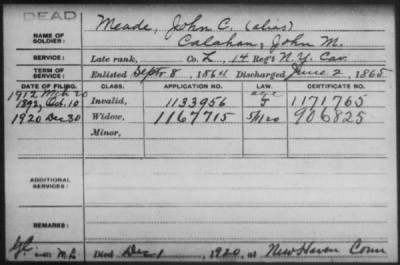 DEAD
NAME OF SOLDIER: Meade, John C. (alias)
Calahan, John M.
SERVICE: Late rank, Co. L, 14 Reg't N.Y. Cav.
TERM OF SERVICE: Enlisted Septr. 8, 1864 Discharged June 2, 1865
DATE OF FILING. CLASS. APPLICATION NO. LAW. CERTIFICATE NO.
1912 Mch 20 age
1892, Oct. 10 Invalid, 1133956 J 1171765
1920 Dec 30 Widow, 1167715 5/1/20 906825
Minor,
ADDITIONAL SERVICES:
REMARKS:
Died Dec 1, 1920, at New Haven Conn